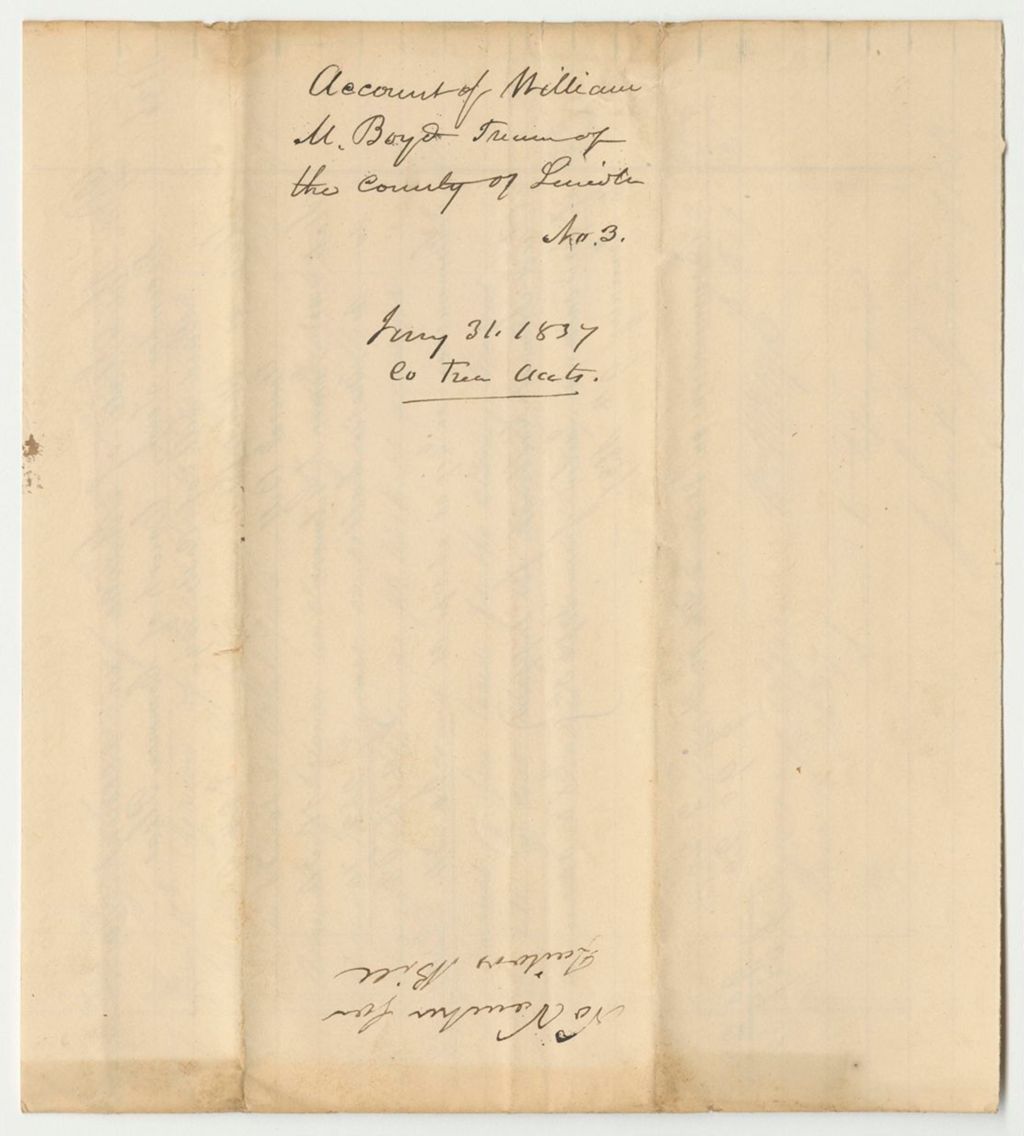 Account of William
M. Boyd Treasr of
the County of Lincoln
No. 3.
Jany 31. 1837
Co Trea Accts.
No Voucher for
Jailors Bill